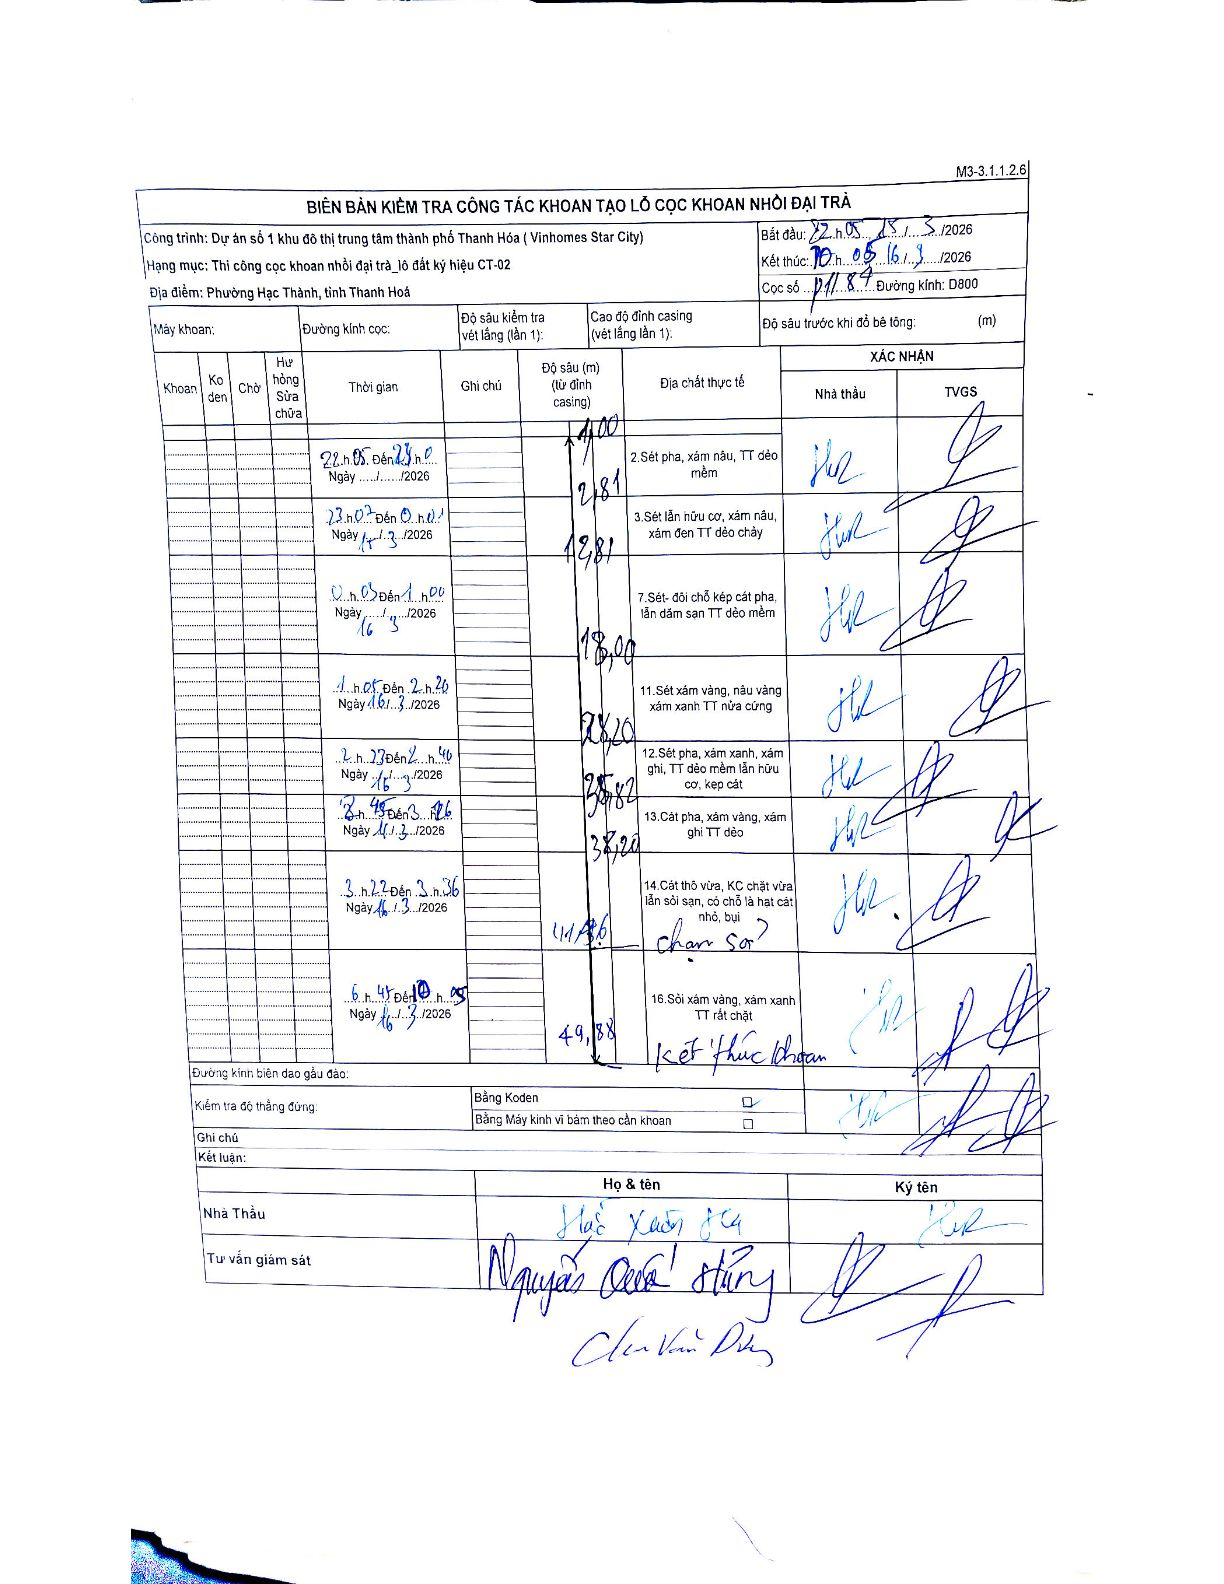 M3-3.1.1.2.6
BIÊN BẢN KIỂM TRA CÔNG TÁC KHOAN TẠO LỖ CỌC KHOAN NHỒI ĐẠI TRÀ
Công trình: Dự án số 1 khu đô thị trung tâm thành phố Thanh Hóa ( Vinhomes Star City)
Hạng mục: Thi công cọc khoan nhồi đại trà_lô đất ký hiệu CT-02
Địa điểm: Phường Hạc Thành, tỉnh Thanh Hoá
Bắt đầu: 22.h.05 15/3/2026
Kết thúc: 10.h.05 16/3/2026
Cọc số P1/87 Đường kính: D800
Máy khoan:
Đường kính cọc:
Độ sâu kiểm tra
vét lắng (lần 1):
Cao độ đỉnh casing
(vét lắng lần 1):
Độ sâu trước khi đổ bê tông: (m)
Khoan
Ko
den
Chờ
Hư
hỏng
Sửa
chữa
Thời gian
Ghi chú
Độ sâu (m)
(từ đỉnh
casing)
Địa chất thực tế
XÁC NHẬN
Nhà thầu
TVGS
1,00
22.h.05. Đến 23.h.0
Ngày ...../....../2026
2,81
2.Sét pha, xám nâu, TT dẻo
mềm
23.h.07 Đến 0.h.01
Ngày 15/.3../2026
12,81
3.Sét lẫn hữu cơ, xám nâu,
xám đen TT dẻo chảy
0.h.03 Đến 1.h.00
Ngày 16/3/2026
18,00
7.Sét- đôi chỗ kẹp cát pha,
lẫn dăm sạn TT dẻo mềm
1.h.05 Đến 2.h.20
Ngày 16/.3../2026
28,20
11.Sét xám vàng, nâu vàng
xám xanh TT nửa cứng
2.h.23 Đến 2.h.40
Ngày 16/3/2026
35,82
12.Sét pha, xám xanh, xám
ghi, TT dẻo mềm lẫn hữu
cơ, kẹp cát
h.45 Đến 3.h
Ngày 16/.3../2026
38,20
13.Cát pha, xám vàng, xám
ghi TT dẻo
3.h.22 Đến 3.h.36
Ngày 16/.3../2026
14.Cát thô vừa, KC chặt vừa
lẫn sỏi sạn, có chỗ là hạt cát
nhỏ, bụi
Chạm Sỏi
6.h.45 Đến 10.h.05
Ngày 16/.3../2026
49,88
16.Sỏi xám vàng, xám xanh
TT rất chặt
Kết thúc khoan
Đường kính biên dao gầu đào:
Kiểm tra độ thẳng đứng:
Bằng Koden
Bằng Máy kinh vĩ bám theo cần khoan
Ghi chú
Kết luận:
Họ & tên
Ký tên
Nhà Thầu
Tư vấn giám sát
Nguyễn Quốc Hùng